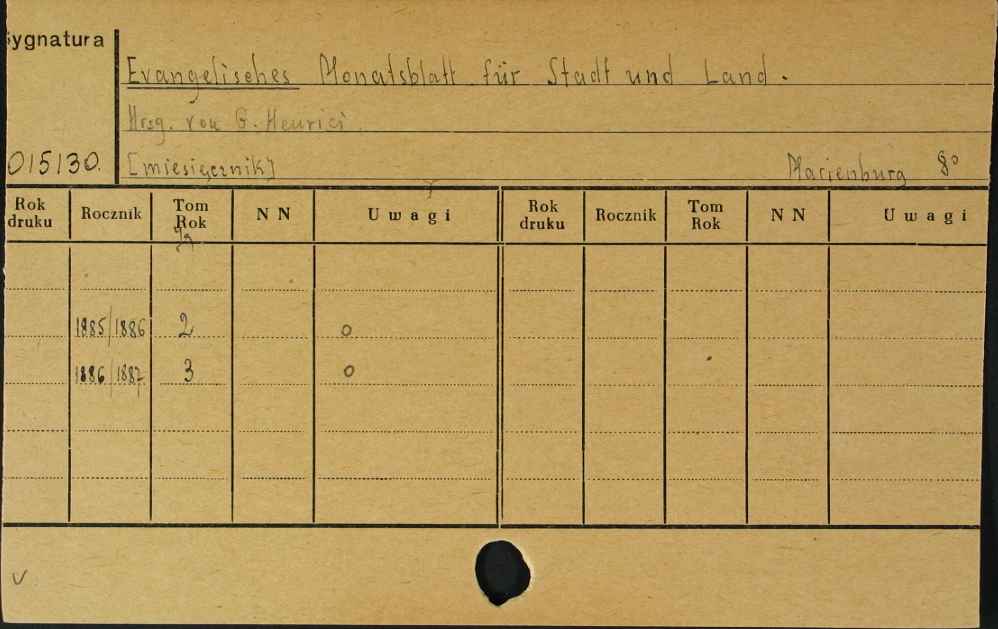 Sygnatura
Evangelisches Monatsblatt für Stadt und Land.
Hrsg. von G. Henrici.
015130. [miesięcznik] Marienburg 8°
Rok druku Rocznik Tom Rok N N Uwagi Rok druku Rocznik Tom Rok N N Uwagi
Jg
1885/1886 2 o
1886/1887 3 o
v